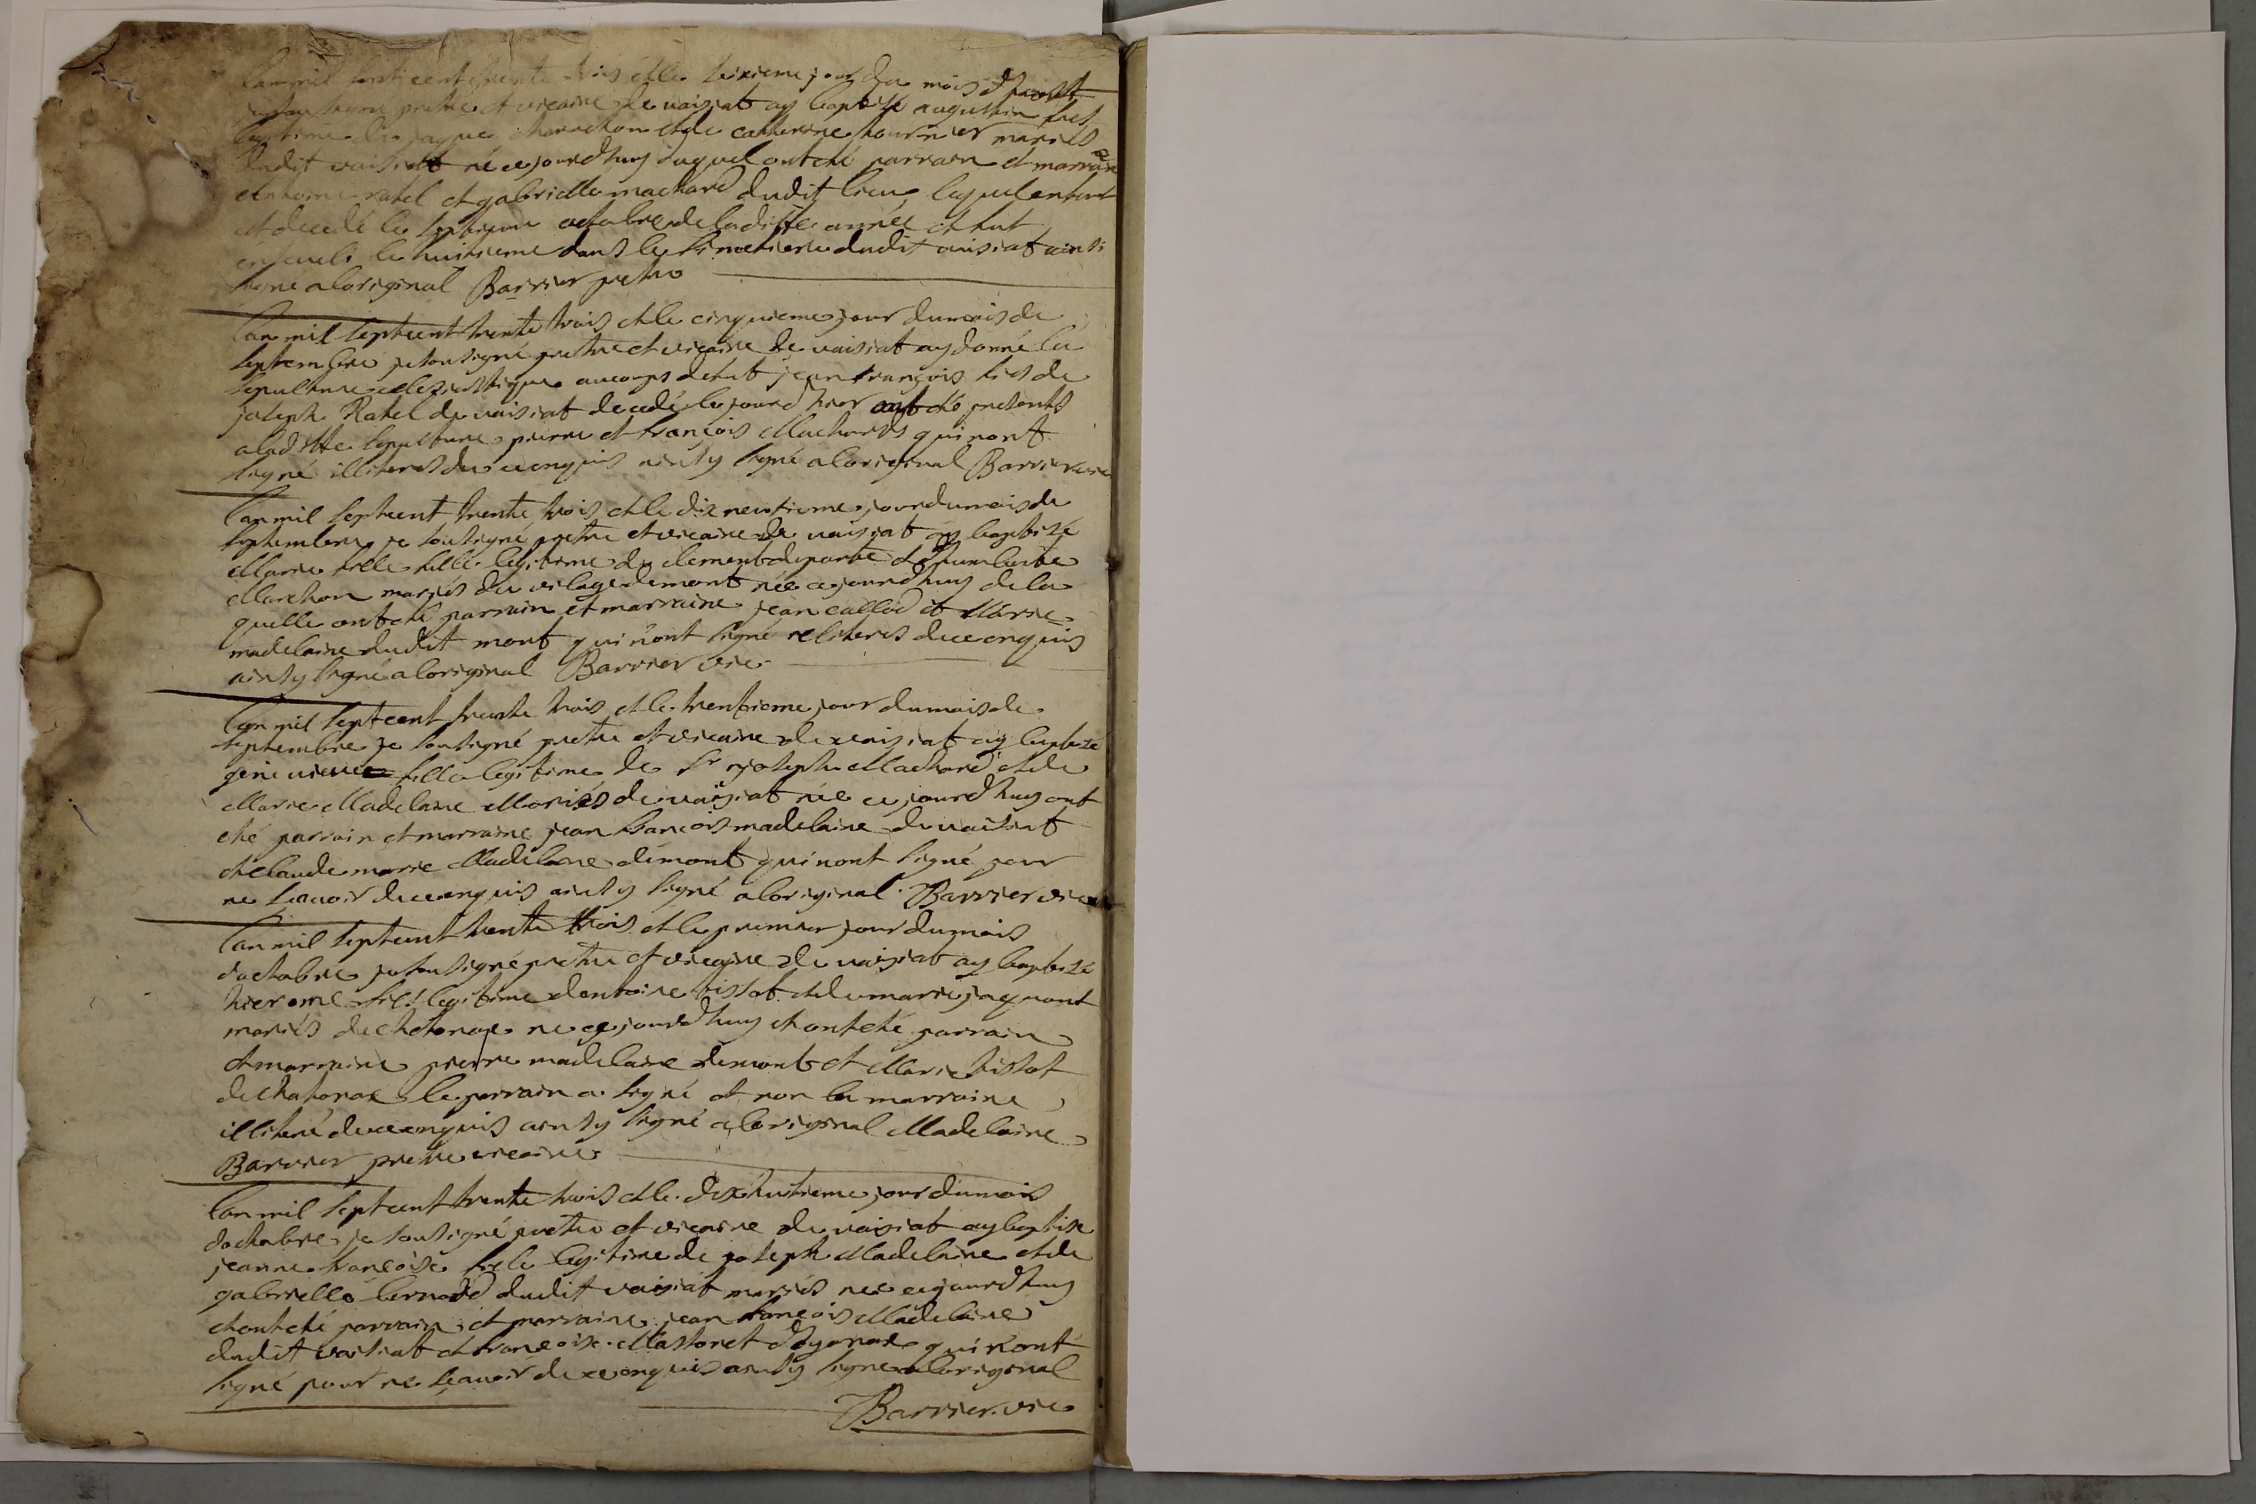 Lan mil sept cent trente trois et le sixieme jour du mois daoust
soussigné pretre et vicaire de vaisiat ay baptisé augustin fils
legitime de jaque marechon et de catherine fournier mariés
dudit vaisiat né ce jourdhuy duquel ont eté parrain et marraine
Antoine ratel et gabrielle machard dudit lieu lequel enfant
est decedé le septieme octobre de laditte année et fut
enseveli le huitieme dans le simetiere dudit vaisiat ainsi
signé a loriginal Barrier pretre
Lan mil septcent trente trois et le cinquieme jour du mois de
septembre je soussigné pretre et vicaire de vaisiat ay donné la
sepulture eclesiastique au corps de fut jean françois fils de
joseph Ratel de vaisiat decedé le jourd hier ont eté presents
a laditte sepulture pierre et françois Machards qui nont
signé illiteres de ce enquis ainsy signé a loriginal Barrier vic
Lan mil septcent trente trois et le dix neuvieme jour du mois de
septembre je soussigné pretre et vicaire de vaisiat ay baptisé
Marie fille legitime de clement deporte et humberte
Marchon mariés du vilage demont née ce jourdhuy de la
quelle ont eté parrain et marraine jean callod et Marie
madelaine dudit mont qui nont signé iliteres de ce enquis
ainsy signé a loriginal Barrier vic
Lan mil septcent trente trois et le trentieme jour du mois de
septembre je soussigné pretre et vicaire de vaisiat ay baptizé
genevieve fille legitime de Sr joseph Machard et de
Marie Madelaine Mariés de vaisiat née ce jourdhuy ont
eté parrain et marraine jean francois madelaine de vaisiat
et claude marie Madelaine demont qui nont signé pour
ne scavoir de ce enquis ainsy signé a loriginal Barrier vic
Lan mil septcent trente trois et le premier jour du mois
doctobre je soussigné pretre et vicaire de vaisiat ay baptizé
hierome fils legitime dantoine tissot et de marie jaquant
mariés de chatonax ne ce jourdhuy et ont eté parrain
et marraine pierre madelaine demont et Marie tissot
de chatonax le parrain a signé et non la marraine
illiteré de ce enquis ainsy signé a loriginal Madelaine
Barrier pretre vicaire
Lan mil septcent trente trois et le dix huitieme jour du mois
doctobre je soussigné pretre et vicaire de vaisiat ay baptisé
jeanne françoise fille legitime de joseph Madelaine et de
gabrielle bernard dudit vaisiat mariés née ce jourdhuy
et ont eté parrain et marraine jean francois Madelaine
dudit vaisiat et francoise Massonet doyonax qui nont
signé pour ne sçavoir de ce enquis ainsy signé a loriginal
Barrier vic